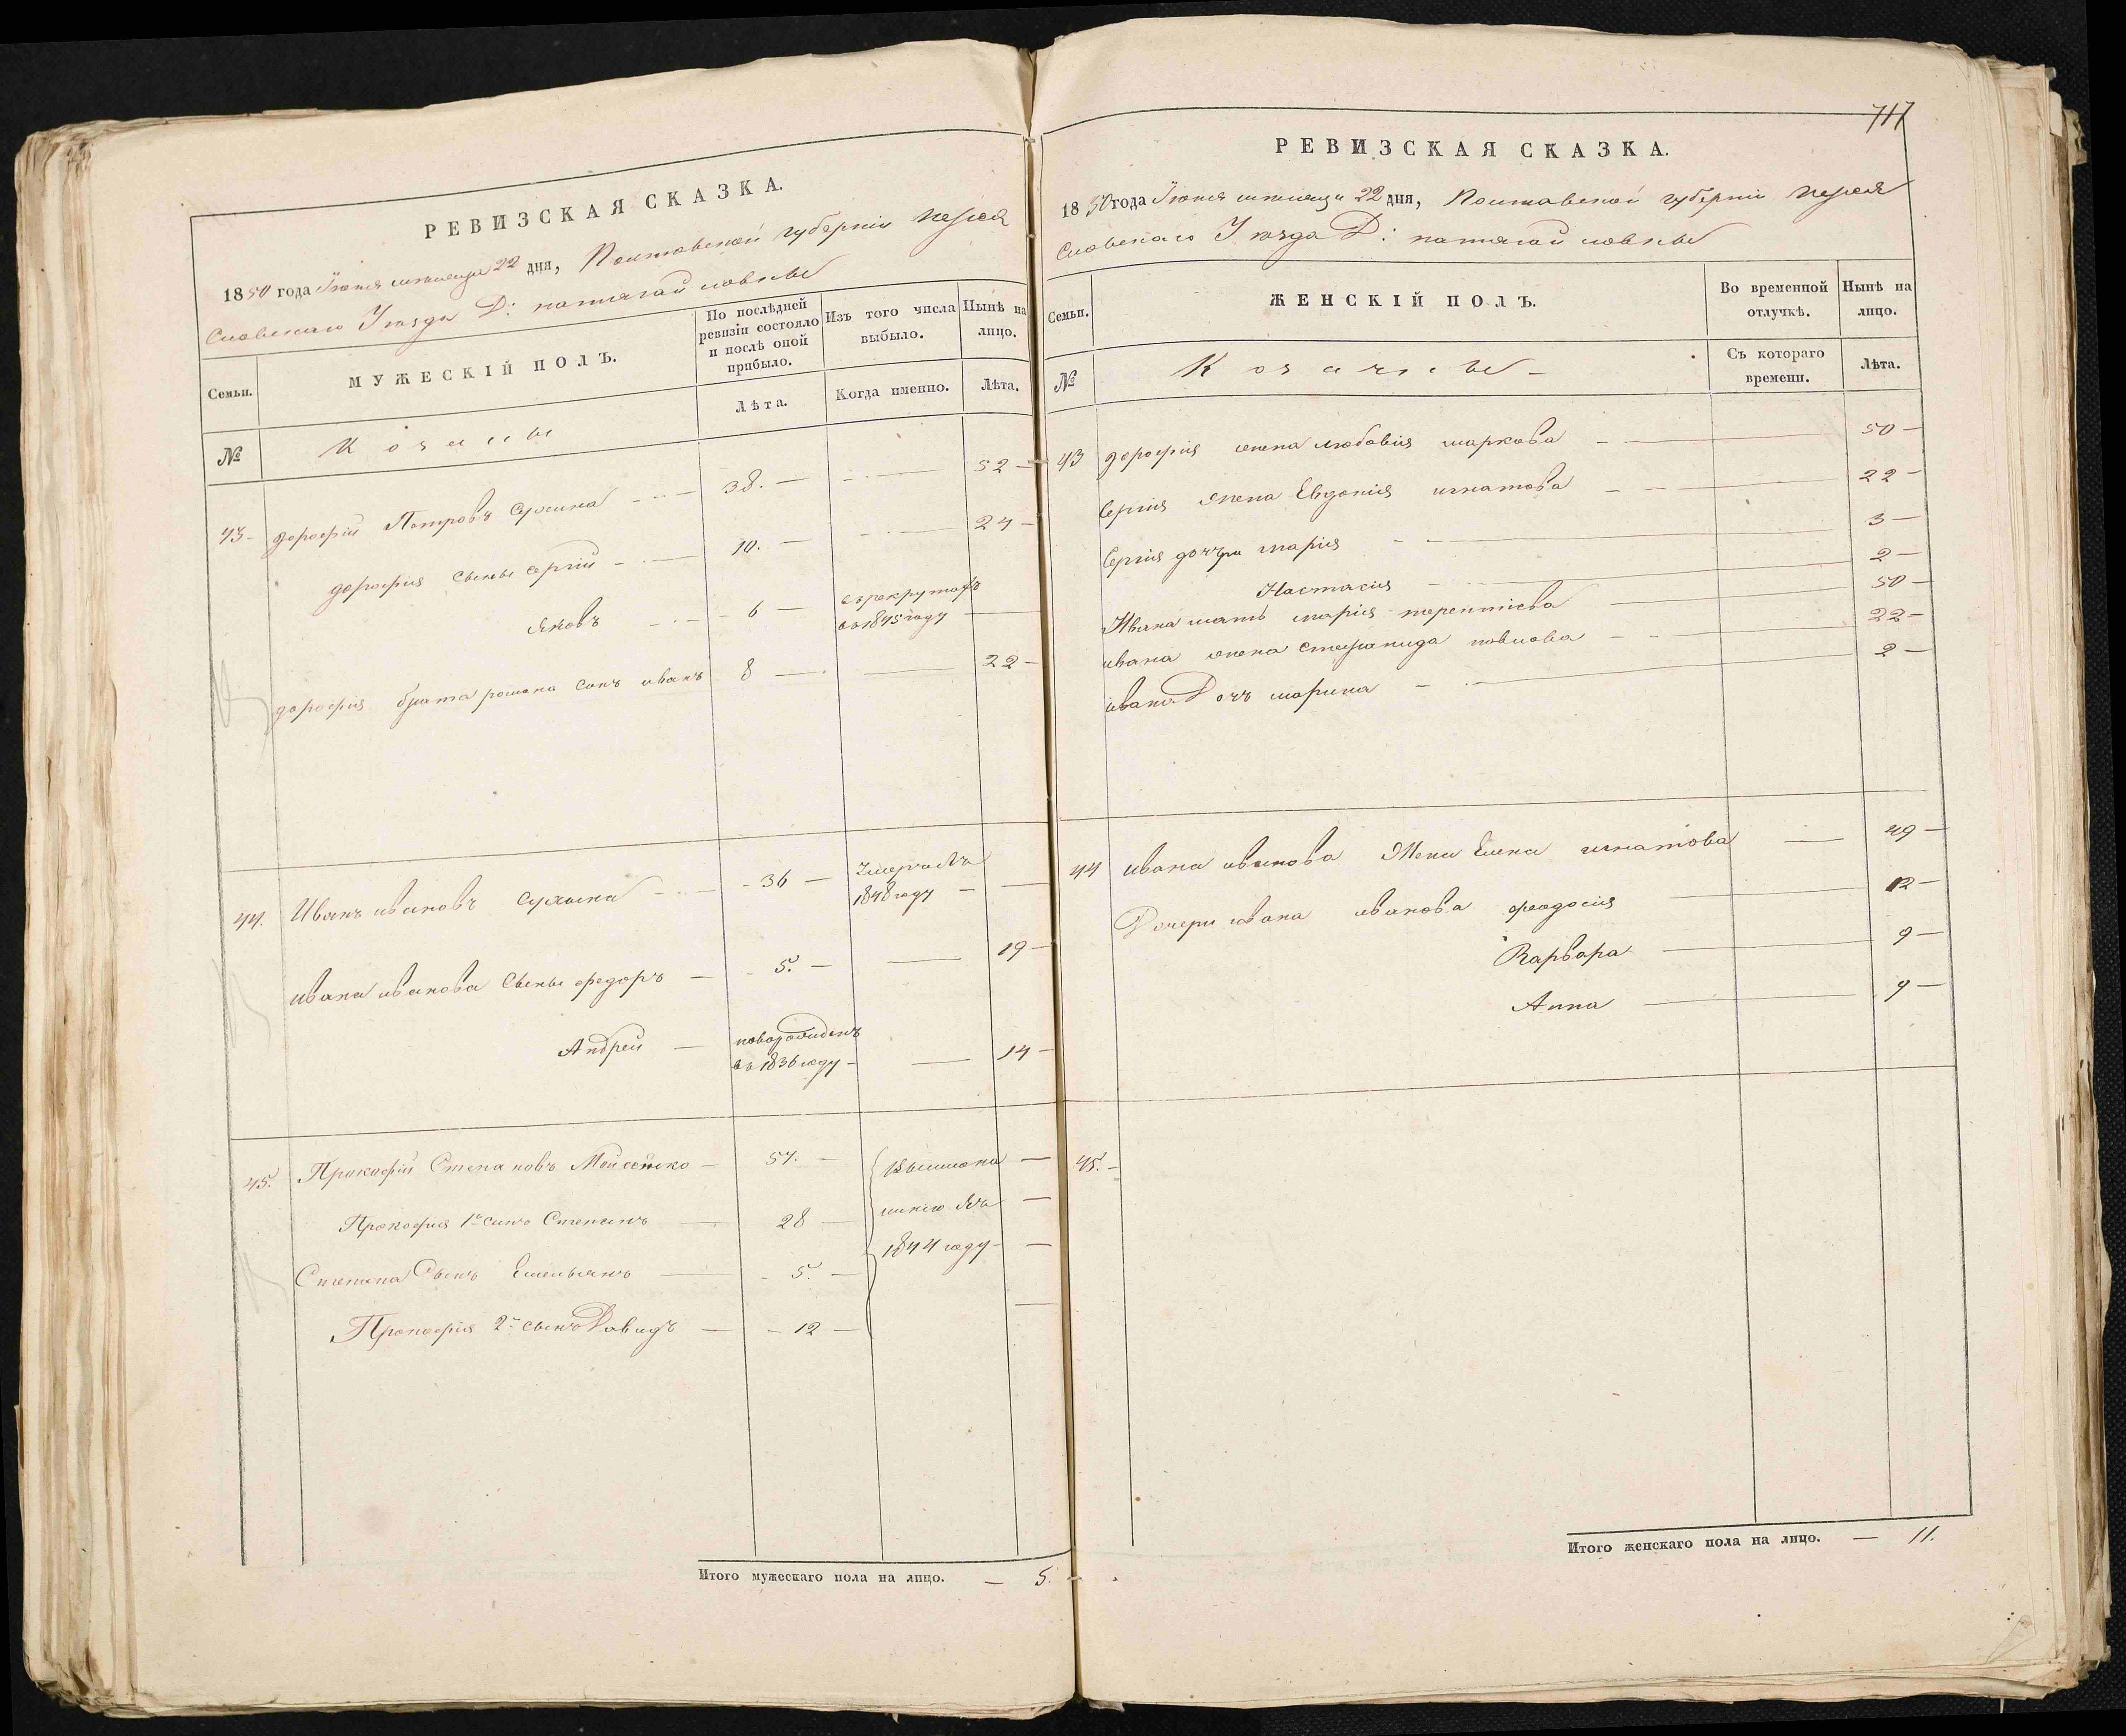 РЕВИЗСКАЯ СКАЗКА.
1850 года Іюня месяца 22 дня, Полтавской губерніи Перея
славскаго Уезда Д:
Семьи.
МУЖЕСКІЙ ПОЛЪ.
По послѣдней ревизіи состояло и послѣ оной прибыло.
Изъ того числа выбыло.
Нынѣ на лицо.
№
Козаки
Лѣта.
Когда именно.
Лѣта.
43 Дорофій Петровъ Сухина 38. 52
Дорофія сыны Сергій 10. 24
Яковъ 6 въ рекрутахъ
въ 1845 году
Дорофія брата романа сынъ иванъ 8 22
44. Иванъ ивановъ Сухина 36 Умеръ въ
1848 году
ивана иванова сыны федоръ 5. 19
Андрей новорожденъ
въ 1836 году 14
45. Прокофій Степановъ Моисеенко 57.
Прокофія 1й сынъ Степанъ 28
Степана Сынъ Емельянъ 5. 1844 году
Прокофія 2й сынъ Давидъ 12
Итого мужескаго пола на лицо. — 5.
717
РЕВИЗСКАЯ СКАЗКА.
1850 года Іюня месяца 22 дня, Полтавской губерніи Перея
славскаго Уезда Д:
Семьи.
ЖЕНСКІЙ ПОЛЪ.
Во временной отлучкѣ.
Нынѣ на лицо.
№
Козачьи
Съ котораго времени.
Лѣта.
43 Дорофія жена любовія маркова 50
Сергія жена Евдокія игнатова 22
Сергія дочъри марія 3
Настасія 2
Ивана мать марія терентіева 50
ивана жена Степанида повлова 22
ивана Дочъ марина 2
44 ивана иванова Жена Елена игнатова 49
Дочери ивана иванова феодосія 12
Варвара 9
Анна
45.
Итого женскаго пола на лицо. — 11.